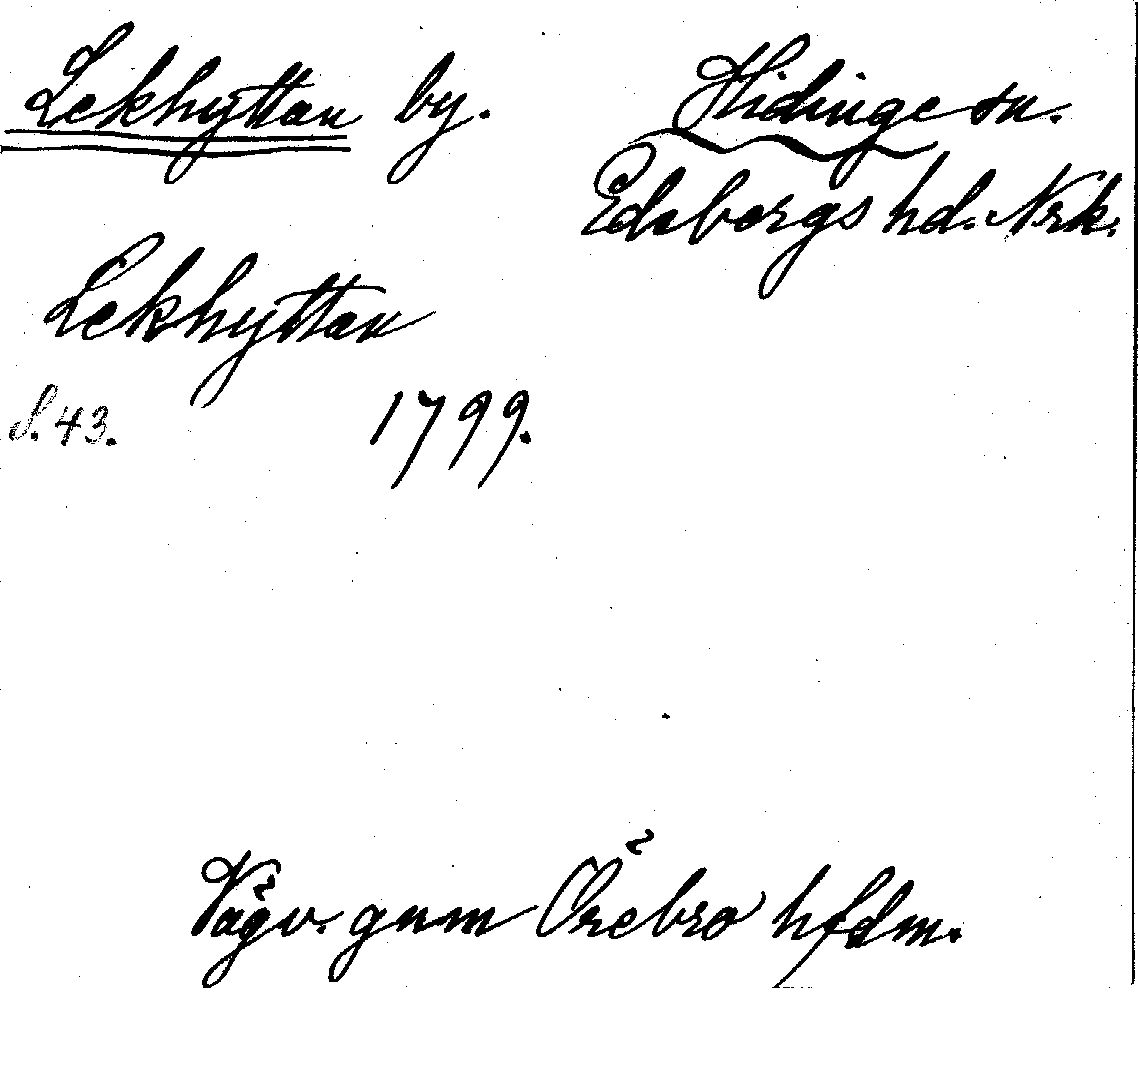 Lekhyttan by.
Hidinge sn.
Edsbergs hd. Nrk.
Lekhyttan
S. 43. 1799.
Vägv. gnm Örebro hfdm.